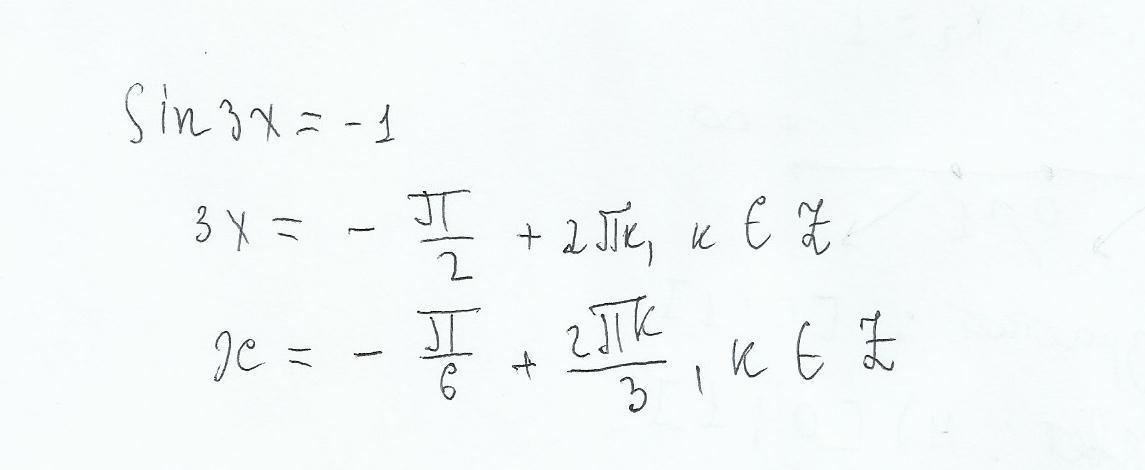 sin 3x = -1
3x = - π/2 + 2πk, k ∈ Z
x = - π/6 + 2πk/3, k ∈ Z